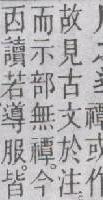 禫或作
故見古文於注
而示部無禫。今
㐁讀若導服皆